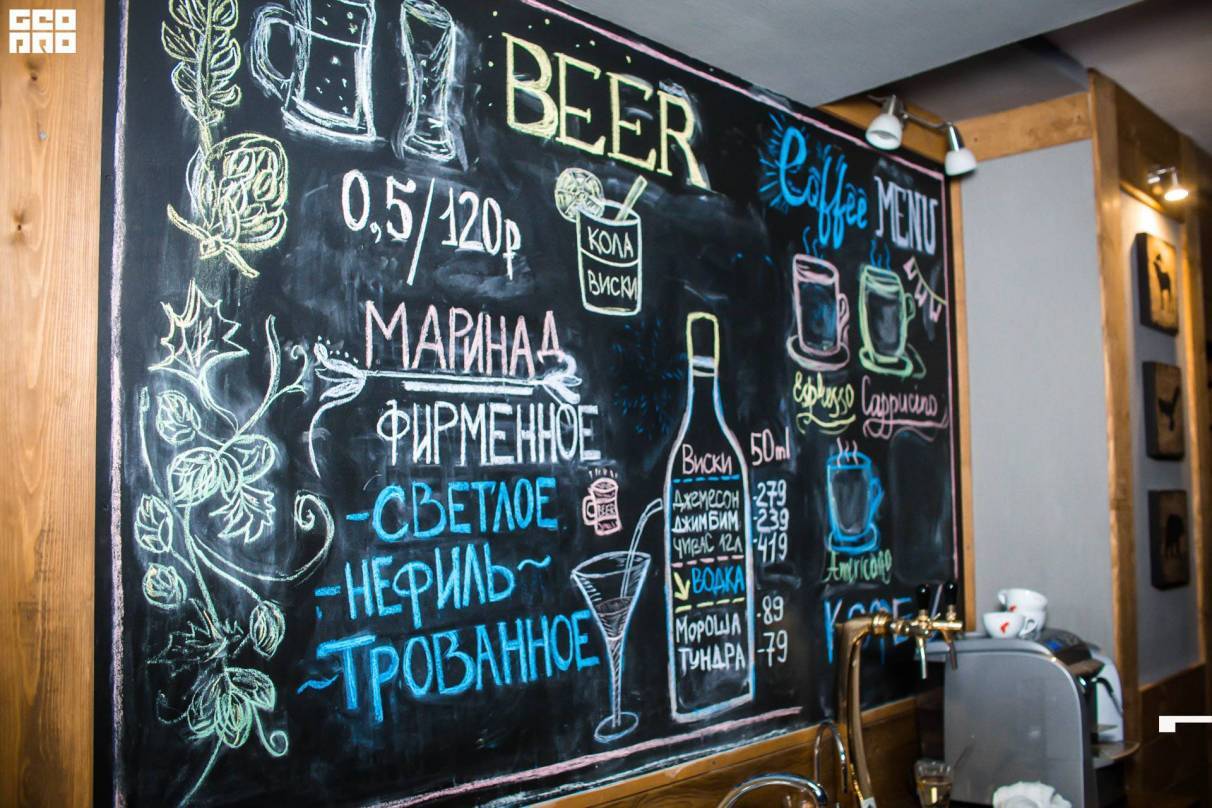 GEO
PRO
BEER
0,5/120₽
КОЛА
ВИСКИ
МАРИНАД
ФИРМЕННОЕ
-СВЕТЛОЕ
-НЕФИЛЬ~
~ТРОВАННОЕ
BEER
ВИСКИ 50ml
ДЖЕМЕСОН -279
ДЖИМБИМ -239
ЧИВАС 12Л -419
ВОДКА
МОРОША -89
ТУНДРА -79
Coffee MENU
Espresso
Cappucino
Americano
КОФЕ